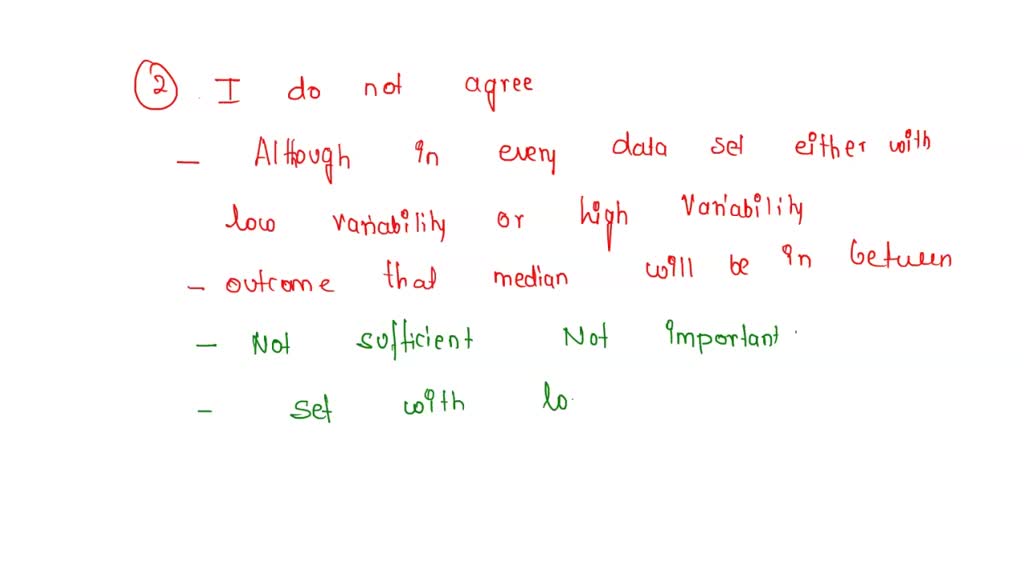 2 I do not agree
- Although in every data set either with
low variability or high variability
- outcome that median will be in between
- Not sufficient Not important
- set with lo